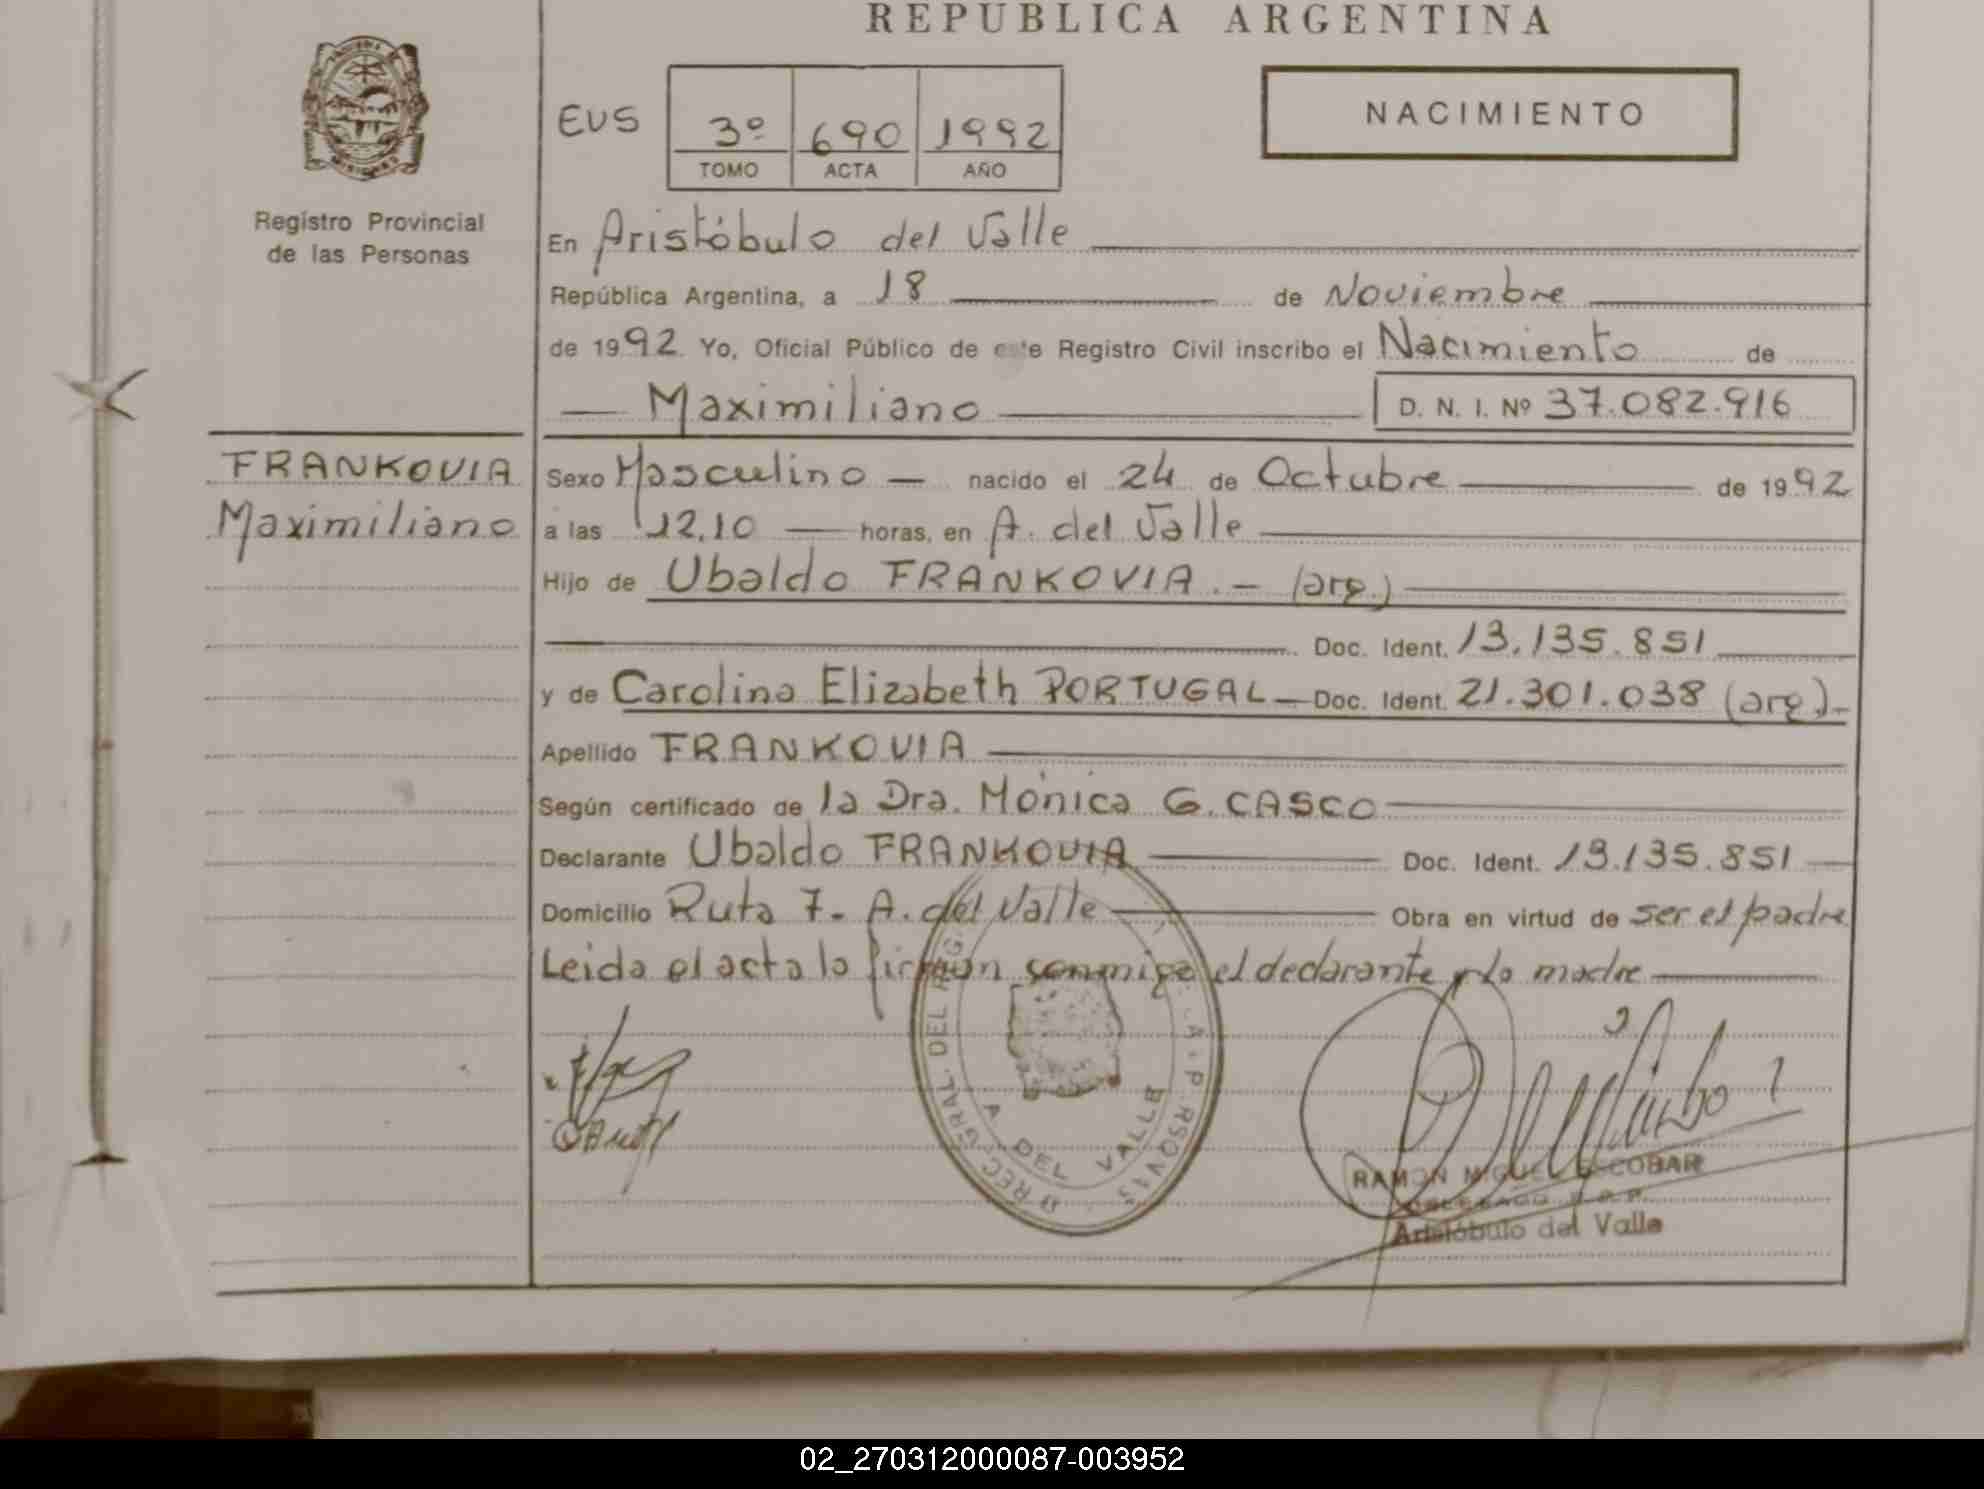 REPUBLICA ARGENTINA
NACIMIENTO
EUS
3º 690 1992
TOMO ACTA AÑO
Registro Provincial
de las Personas
En Aristóbulo del Valle
República Argentina, a 18 de Noviembre
de 1992 Yo, Oficial Público de este Registro Civil inscribo el Nacimiento de
Maximiliano D. N. I. Nº 37.082.916
FRANKOVIA
Maximiliano
Sexo Masculino — nacido el 24 de Octubre de 1992
a las 12,10 — horas, en A. del Valle
Hijo de Ubaldo FRANKOVIA . - (arg.)
Doc. Ident. 13.135.851
y de Carolina Elizabeth PORTUGAL — Doc. Ident. 21.301.038 (arg.)-
Apellido FRANKOVIA
Según certificado de la Dra. Mónica G. CASCO
Declarante Ubaldo FRANKOVIA Doc. Ident. 13.135.851
Domicilio Ruta 7. A. del Valle Obra en virtud de ser el padre
Leida el acta la firman conmigo el declarante y la madre
A DEL VALLE
RAMON MIGUEL ESCOBAR
Aristóbulo del Valle
02_270312000087-003952